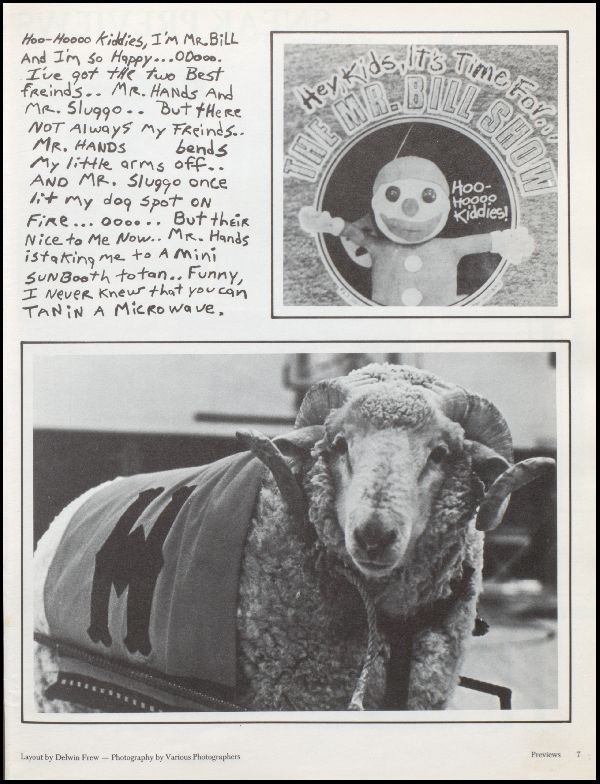 Hoo-Hoooo Kiddies, I'm MR.BILL
And I'm so Happy...OOooo.
I've got the two Best
freinds.. MR. HANds And
MR. Sluggo.. But tHere
NOT Always my Freinds..
MR. HANDS bends
My little arms off..
AND MR. Sluggo once
lit my dog spot ON
FIRe... oooo.. But their
Nice to Me Now.. MR. Hands
istaking me to A Mini
SUNBooth to tan.. Funny,
I Never Knew that you can
TAN iN A Microwave.
Hey, Kids, It's Time For...
THE MR. BILL SHOW
Hoo-
Hoooo
Kiddies!
Layout by Delwin Frew — Photography by Various Photographers
Previews 7